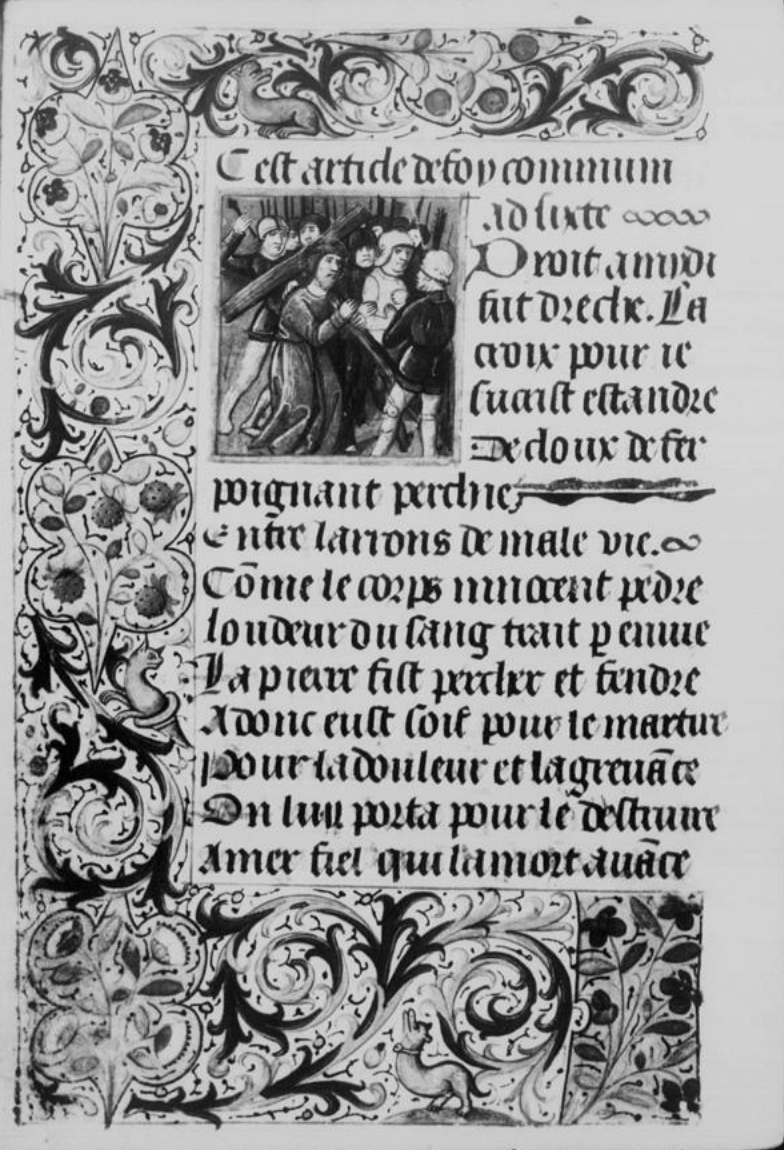 C est article de foy commum
ad sixte
Droit a mydi
fut drecie. La
croix pour ie
sucrist estandre
De cloux de fer
poignant perchie
Entre larrons de male vie.
Cōme le corps innocent pēdre
loudeur du sang trait p enuie
La pierre fist percher et fendre
Adonc eust soif pour le martire
Pour la douleur et la greuāce
On luy porta pour le destruire
Amer fiel qui la mort auāce